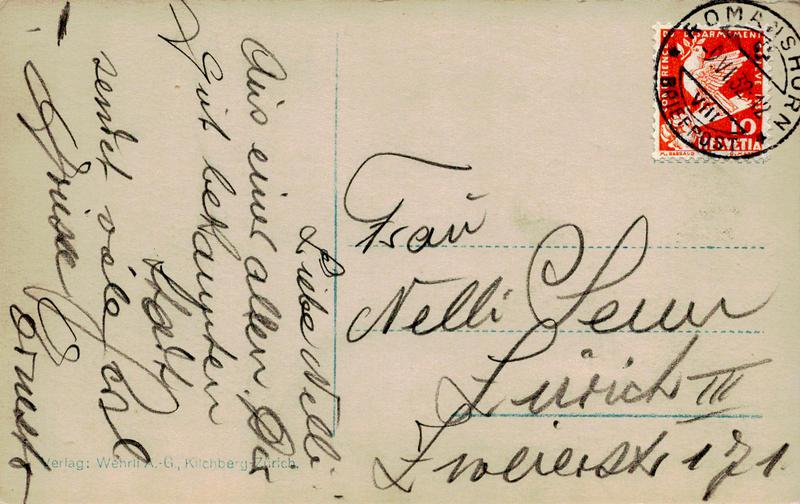 Liebe Nelli
Aus einer alten Dir
Gut bekannten
Stadt
sendet viele
Grüsse
Ernesto
Frau
Nelli
Zürich III
Zweierstr 171.
Verlag: Wehrli A.-G., Kilchberg-Zürich.
ROMANSHORN
BRIEFPOST
VIII
HELVETIA